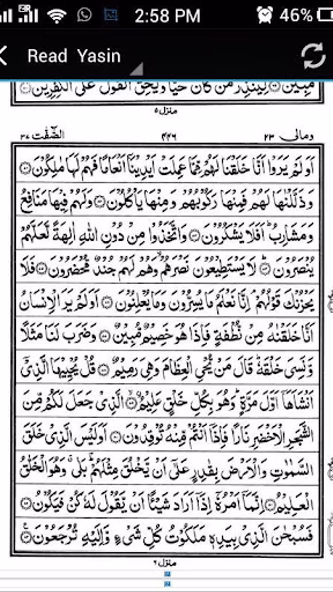 2:58 PM 46%
Read Yasin
مُّبِيْنٌ لِّيُنْذِرَ مَنْ كَانَ حَيًّا وَّيَحِقَّ الْقَوْلُ عَلَى الْكٰفِرِيْنَ
منزل ٥
ومالی ٢٣ ٤٤٦ الصّٰفّٰت ٣٧
اَوَلَمْ يَرَوْا اَنَّا خَلَقْنَا لَهُمْ مِّمَّا عَمِلَتْ اَيْدِيْنَاۤ اَنْعَامًا فَهُمْ لَهَا مٰلِكُوْنَ
وَذَلَّلْنٰهَا لَهُمْ فَمِنْهَا رَكُوْبُهُمْ وَمِنْهَا يَاْكُلُوْنَ وَلَهُمْ فِيْهَا مَنَافِعُ
وَمَشَارِبُ اَفَلَا يَشْكُرُوْنَ وَاتَّخَذُوْا مِنْ دُوْنِ اللّٰهِ اٰلِهَةً لَّعَلَّهُمْ
يُنْصَرُوْنَ لَا يَسْتَطِيْعُوْنَ نَصْرَهُمْ وَهُمْ لَهُمْ جُنْدٌ مُّحْضَرُوْنَ فَلَا
يَحْزُنْكَ قَوْلُهُمْ اِنَّا نَعْلَمُ مَا يُسِرُّوْنَ وَمَا يُعْلِنُوْنَ اَوَلَمْ يَرَ الْاِنْسَانُ
اَنَّا خَلَقْنٰهُ مِنْ نُّطْفَةٍ فَاِذَا هُوَ خَصِيْمٌ مُّبِيْنٌ وَضَرَبَ لَنَا مَثَلًا
وَّنَسِيَ خَلْقَهٗ قَالَ مَنْ يُّحْيِ الْعِظَامَ وَهِيَ رَمِيْمٌ قُلْ يُحْيِيْهَا الَّذِيْۤ
اَنْشَاَهَاۤ اَوَّلَ مَرَّةٍ وَهُوَ بِكُلِّ خَلْقٍ عَلِيْمٌ الَّذِيْ جَعَلَ لَكُمْ مِّنَ
الشَّجَرِ الْاَخْضَرِ نَارًا فَاِذَاۤ اَنْتُمْ مِّنْهُ تُوْقِدُوْنَ اَوَلَيْسَ الَّذِيْ خَلَقَ
السَّمٰوٰتِ وَالْاَرْضَ بِقٰدِرٍ عَلٰۤى اَنْ يَّخْلُقَ مِثْلَهُمْ بَلٰى وَهُوَ الْخَلّٰقُ
الْعَلِيْمُ اِنَّمَاۤ اَمْرُهٗۤ اِذَاۤ اَرَادَ شَيْـًٔا اَنْ يَّقُوْلَ لَهٗ كُنْ فَيَكُوْنُ
فَسُبْحٰنَ الَّذِيْ بِيَدِهٖ مَلَكُوْتُ كُلِّ شَيْءٍ وَّاِلَيْهِ تُرْجَعُوْنَ
منزل ٦